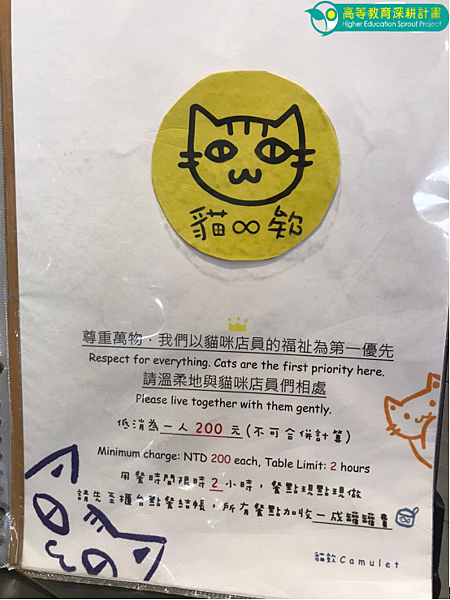 高等教育深耕計畫
Higher Education Sprout Project
貓∞欸
尊重萬物，我們以貓咪店員的福祉為第一優先
Respect for everything. Cats are the first priority here.
請溫柔地與貓咪店員們相處
Please live together with them gently.
低消為一人 200 元(不可合併計算)
Minimum charge: NTD 200 each, Table Limit: 2 hours
用餐時間限時 2 小時，餐點現點現做
請先至櫃台點餐結帳，所有餐點加收一成罐罐費
貓欸Camulet